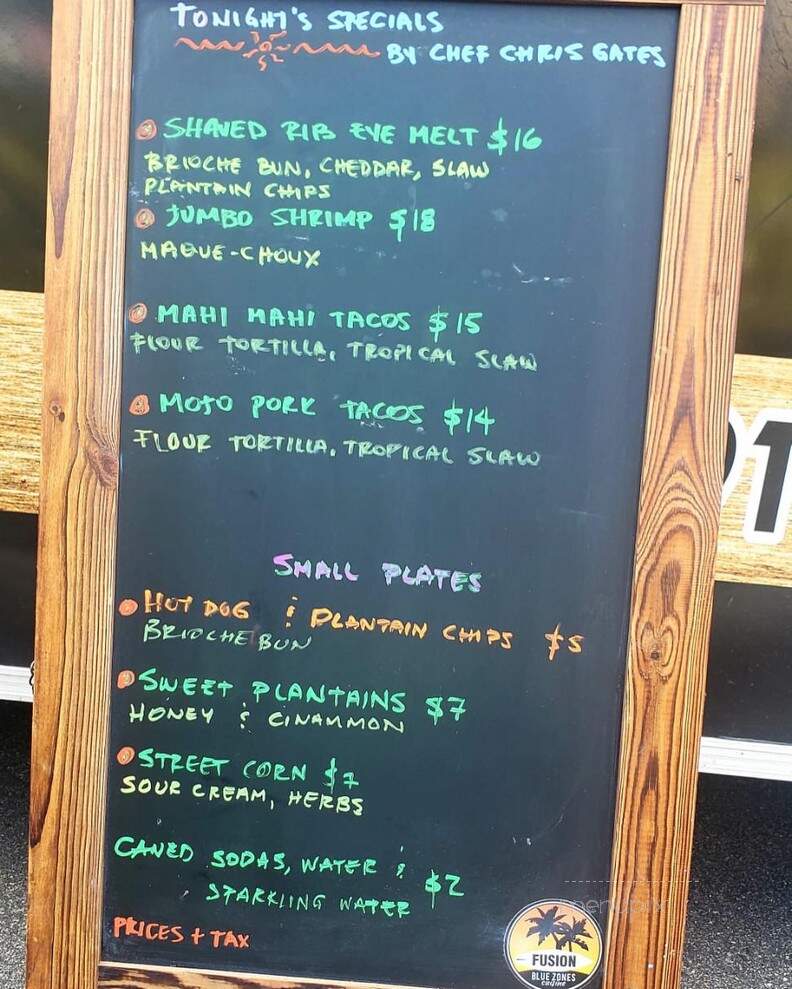 TONIGHT'S SPECIALS
BY CHEF CHRIS GATES
SHAVED RIB EYE MELT $16
BRIOCHE BUN, CHEDDAR, SLAW
PLANTAIN CHIPS
JUMBO SHRIMP $18
MAQUE-CHOUX
MAHI MAHI TACOS $15
FLOUR TORTILLA, TROPICAL SLAW
MOJO PORK TACOS $14
FLOUR TORTILLA, TROPICAL SLAW
SMALL PLATES
HOT DOG & PLANTAIN CHIPS $5
BRIOCHE BUN
SWEET PLANTAINS $7
HONEY & CINAMMON
STREET CORN $7
SOUR CREAM, HERBS
CANED SODAS, WATER &
SPARKLING WATER $2
PRICES + TAX
menupix
FUSION
BLUE ZONES
cuisine